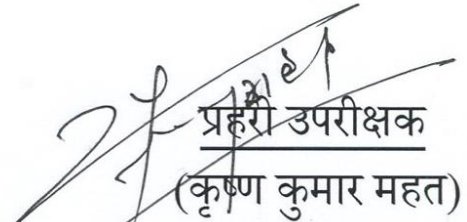 प्रहरी उपरीक्षक
(कृष्ण कुमार महत)